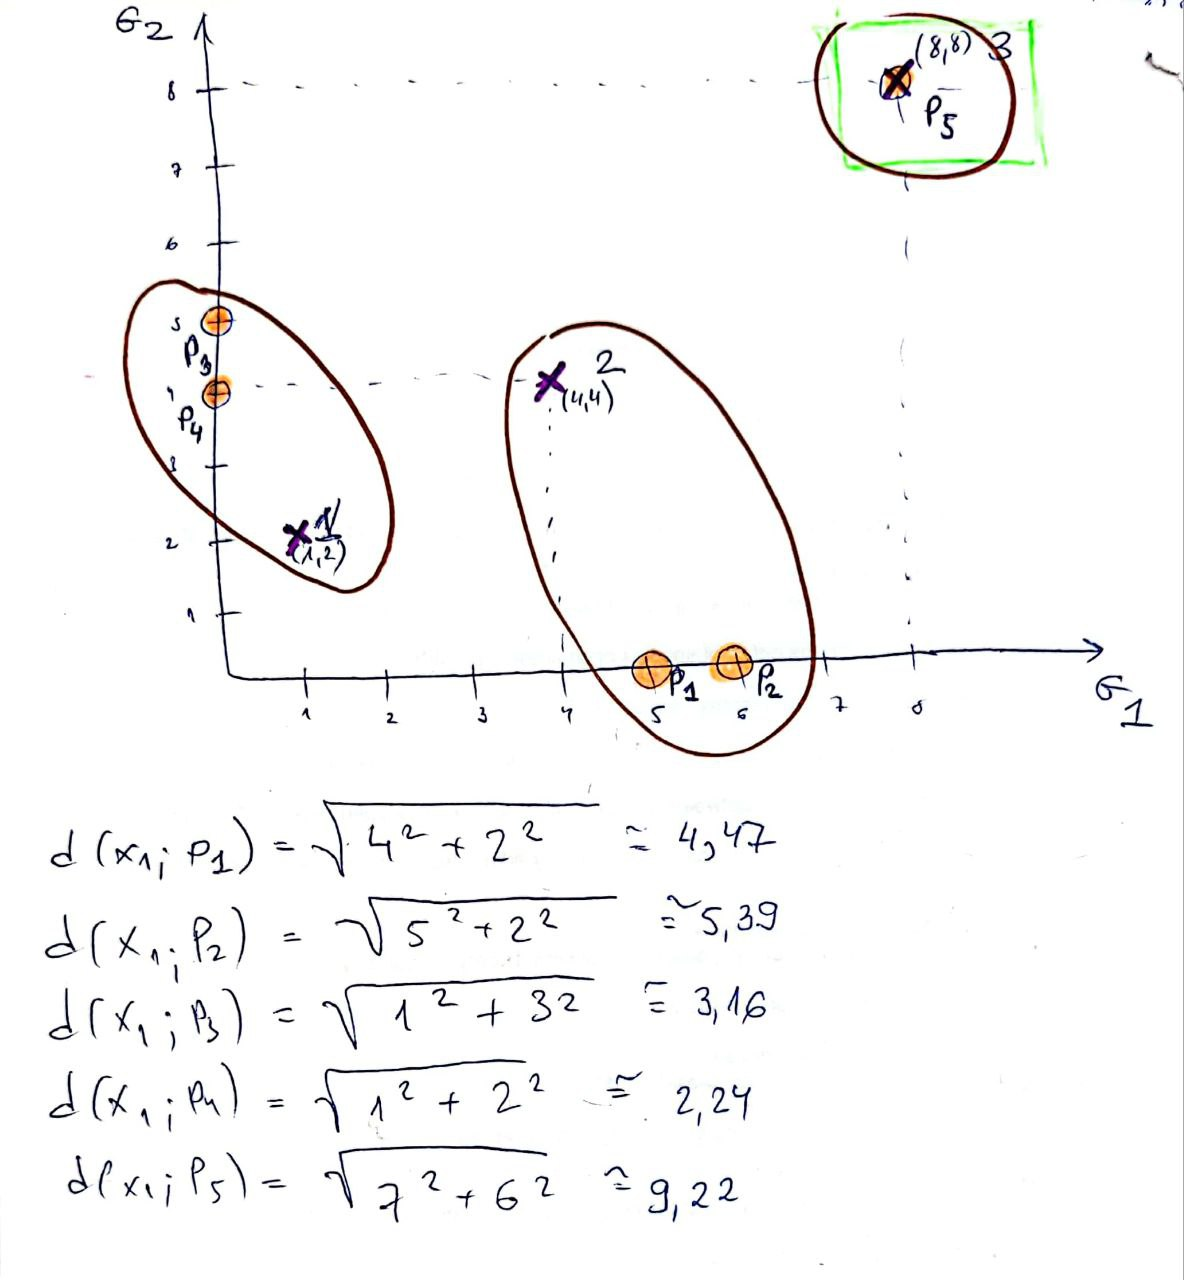 G2
8
(8,8) 3
P5
7
6
5
P3
2
4
(4,4)
P4
3
1
2
(1,2)
1
P1
P2
1 2 3 4 5 6 7 8
G1
d(x1; P1) = √4² + 2² ≅ 4,47
d(x1; P2) = √5² + 2² ≅ 5,39
d(x1; P3) = √1² + 3² ≅ 3,16
d(x1; P4) = √1² + 2² ≅ 2,24
d(x1; P5) = √7² + 6² ≅ 9,22